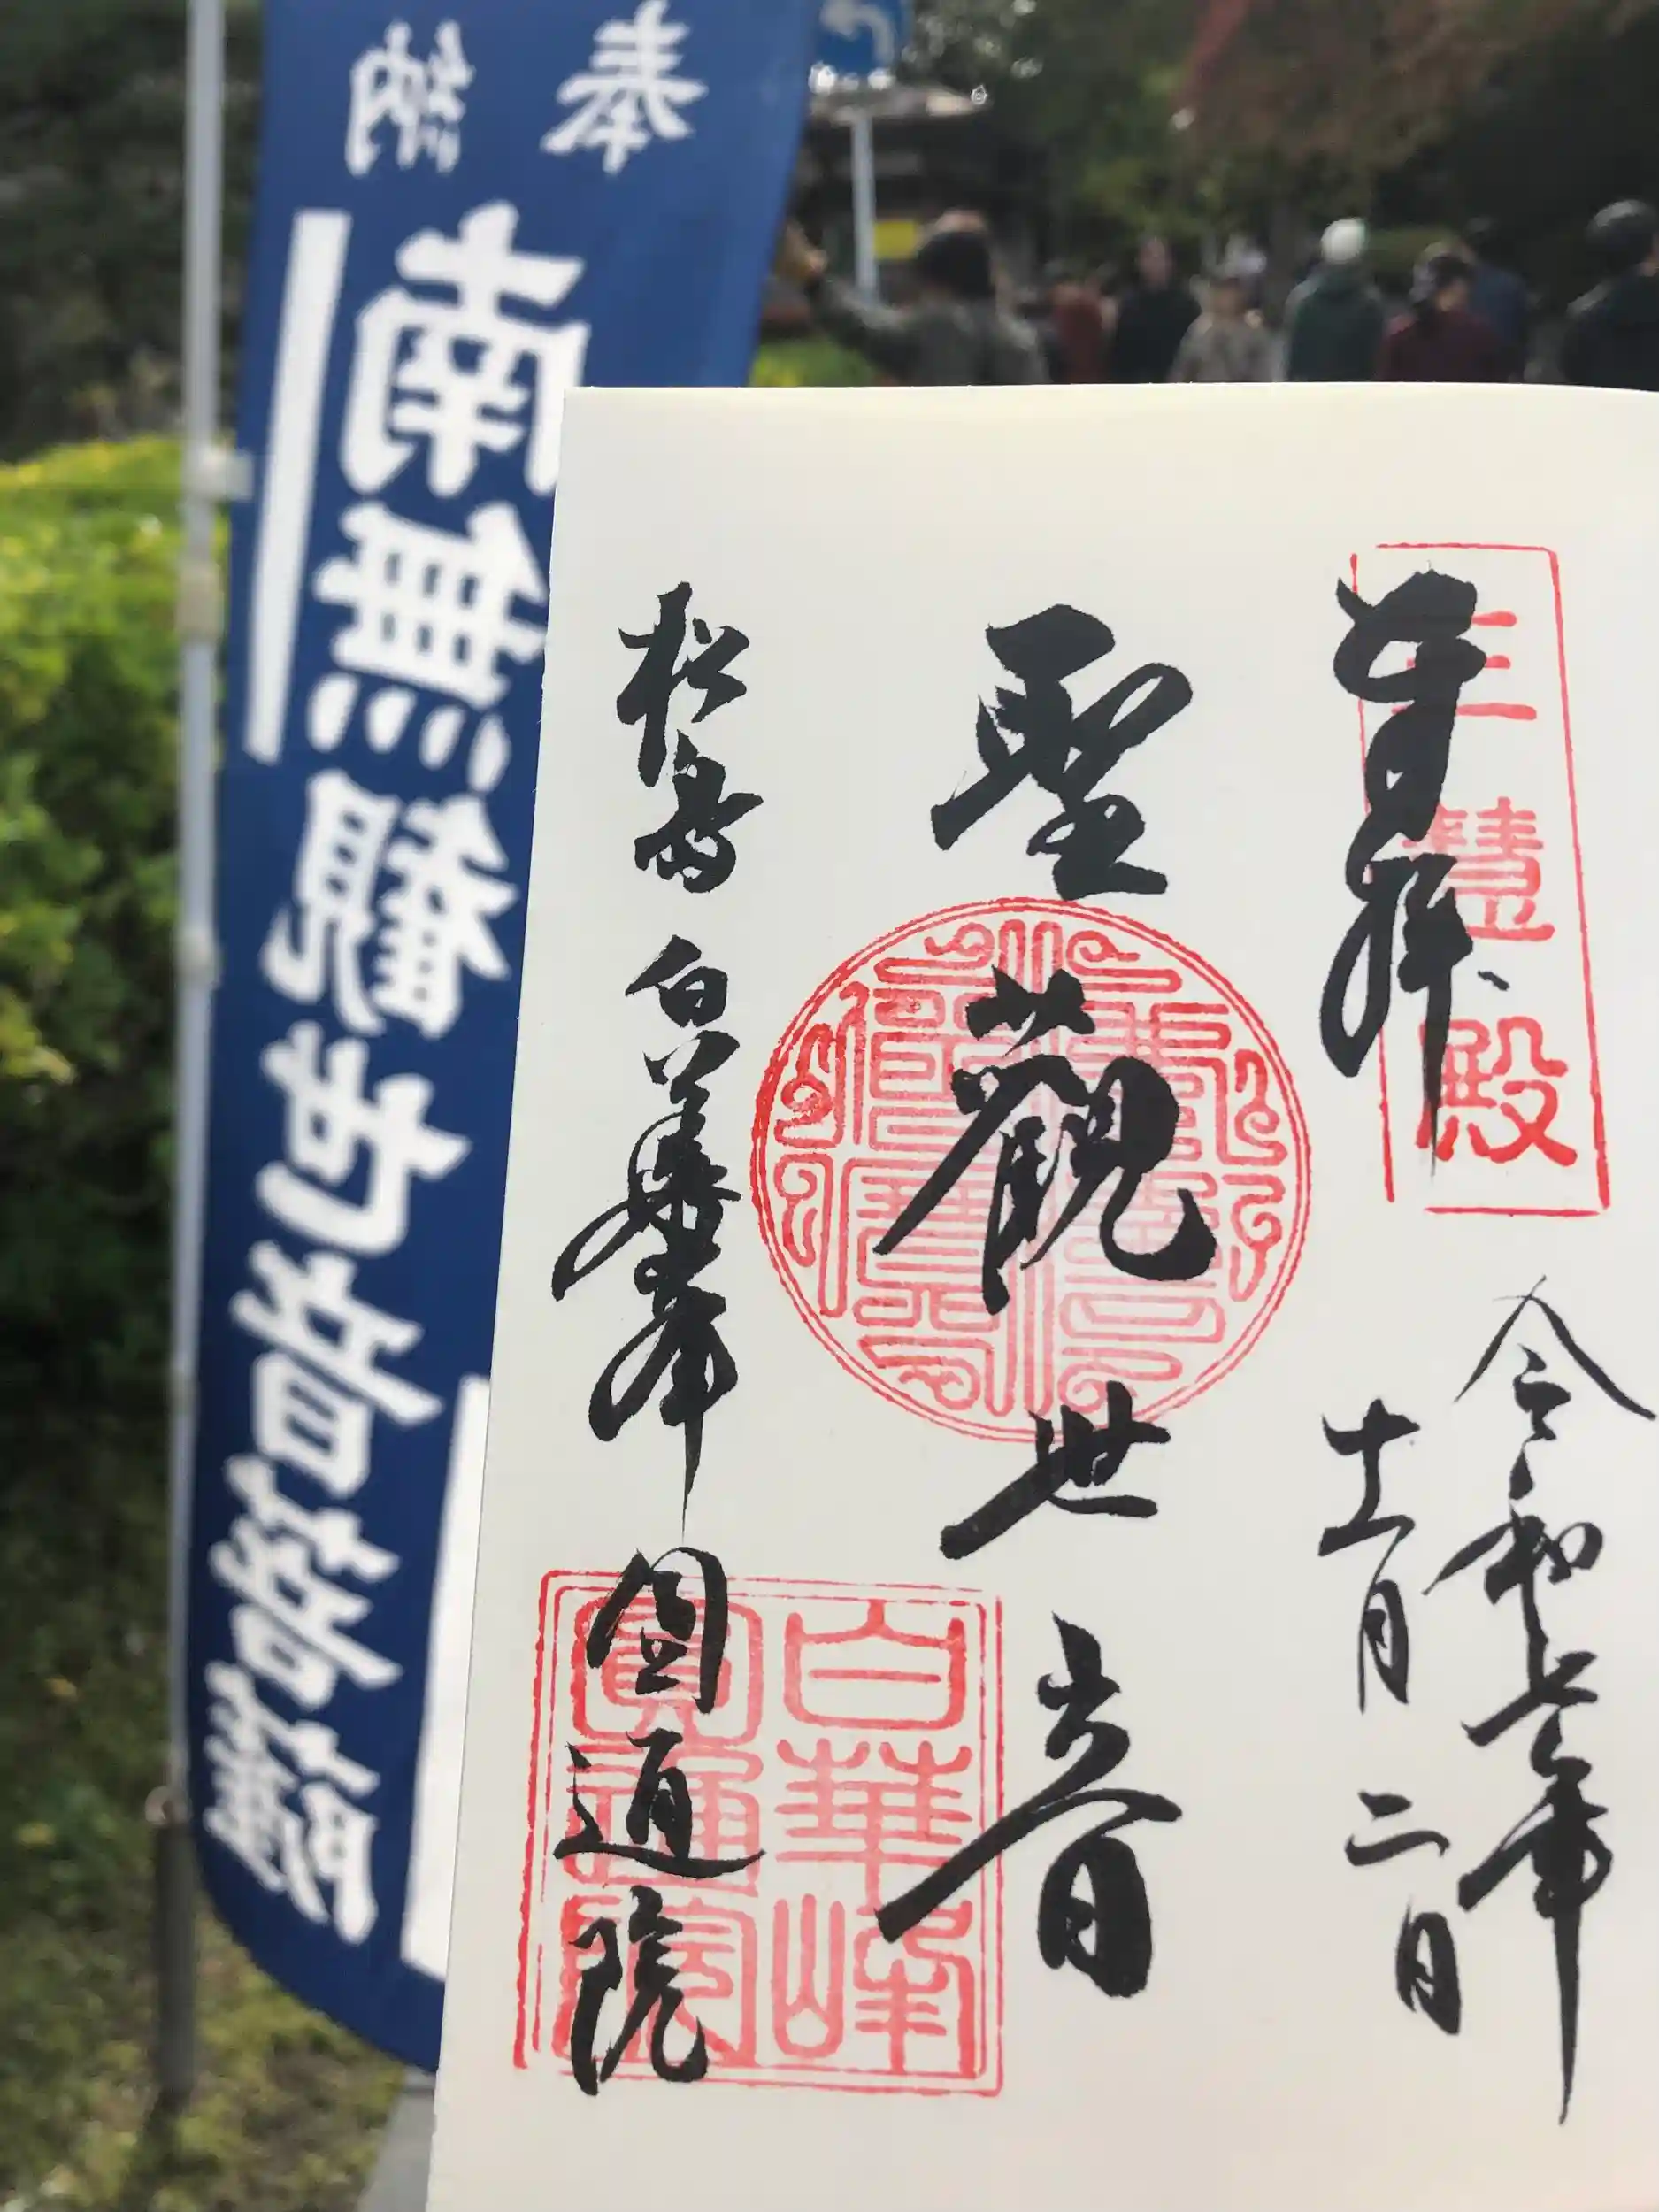 奉納
南無觀世音菩薩
奉拝
三慧殿
令和七年
十一月二日
聖觀世音
松島 白華峯 圓通院
白華峰
圓通院